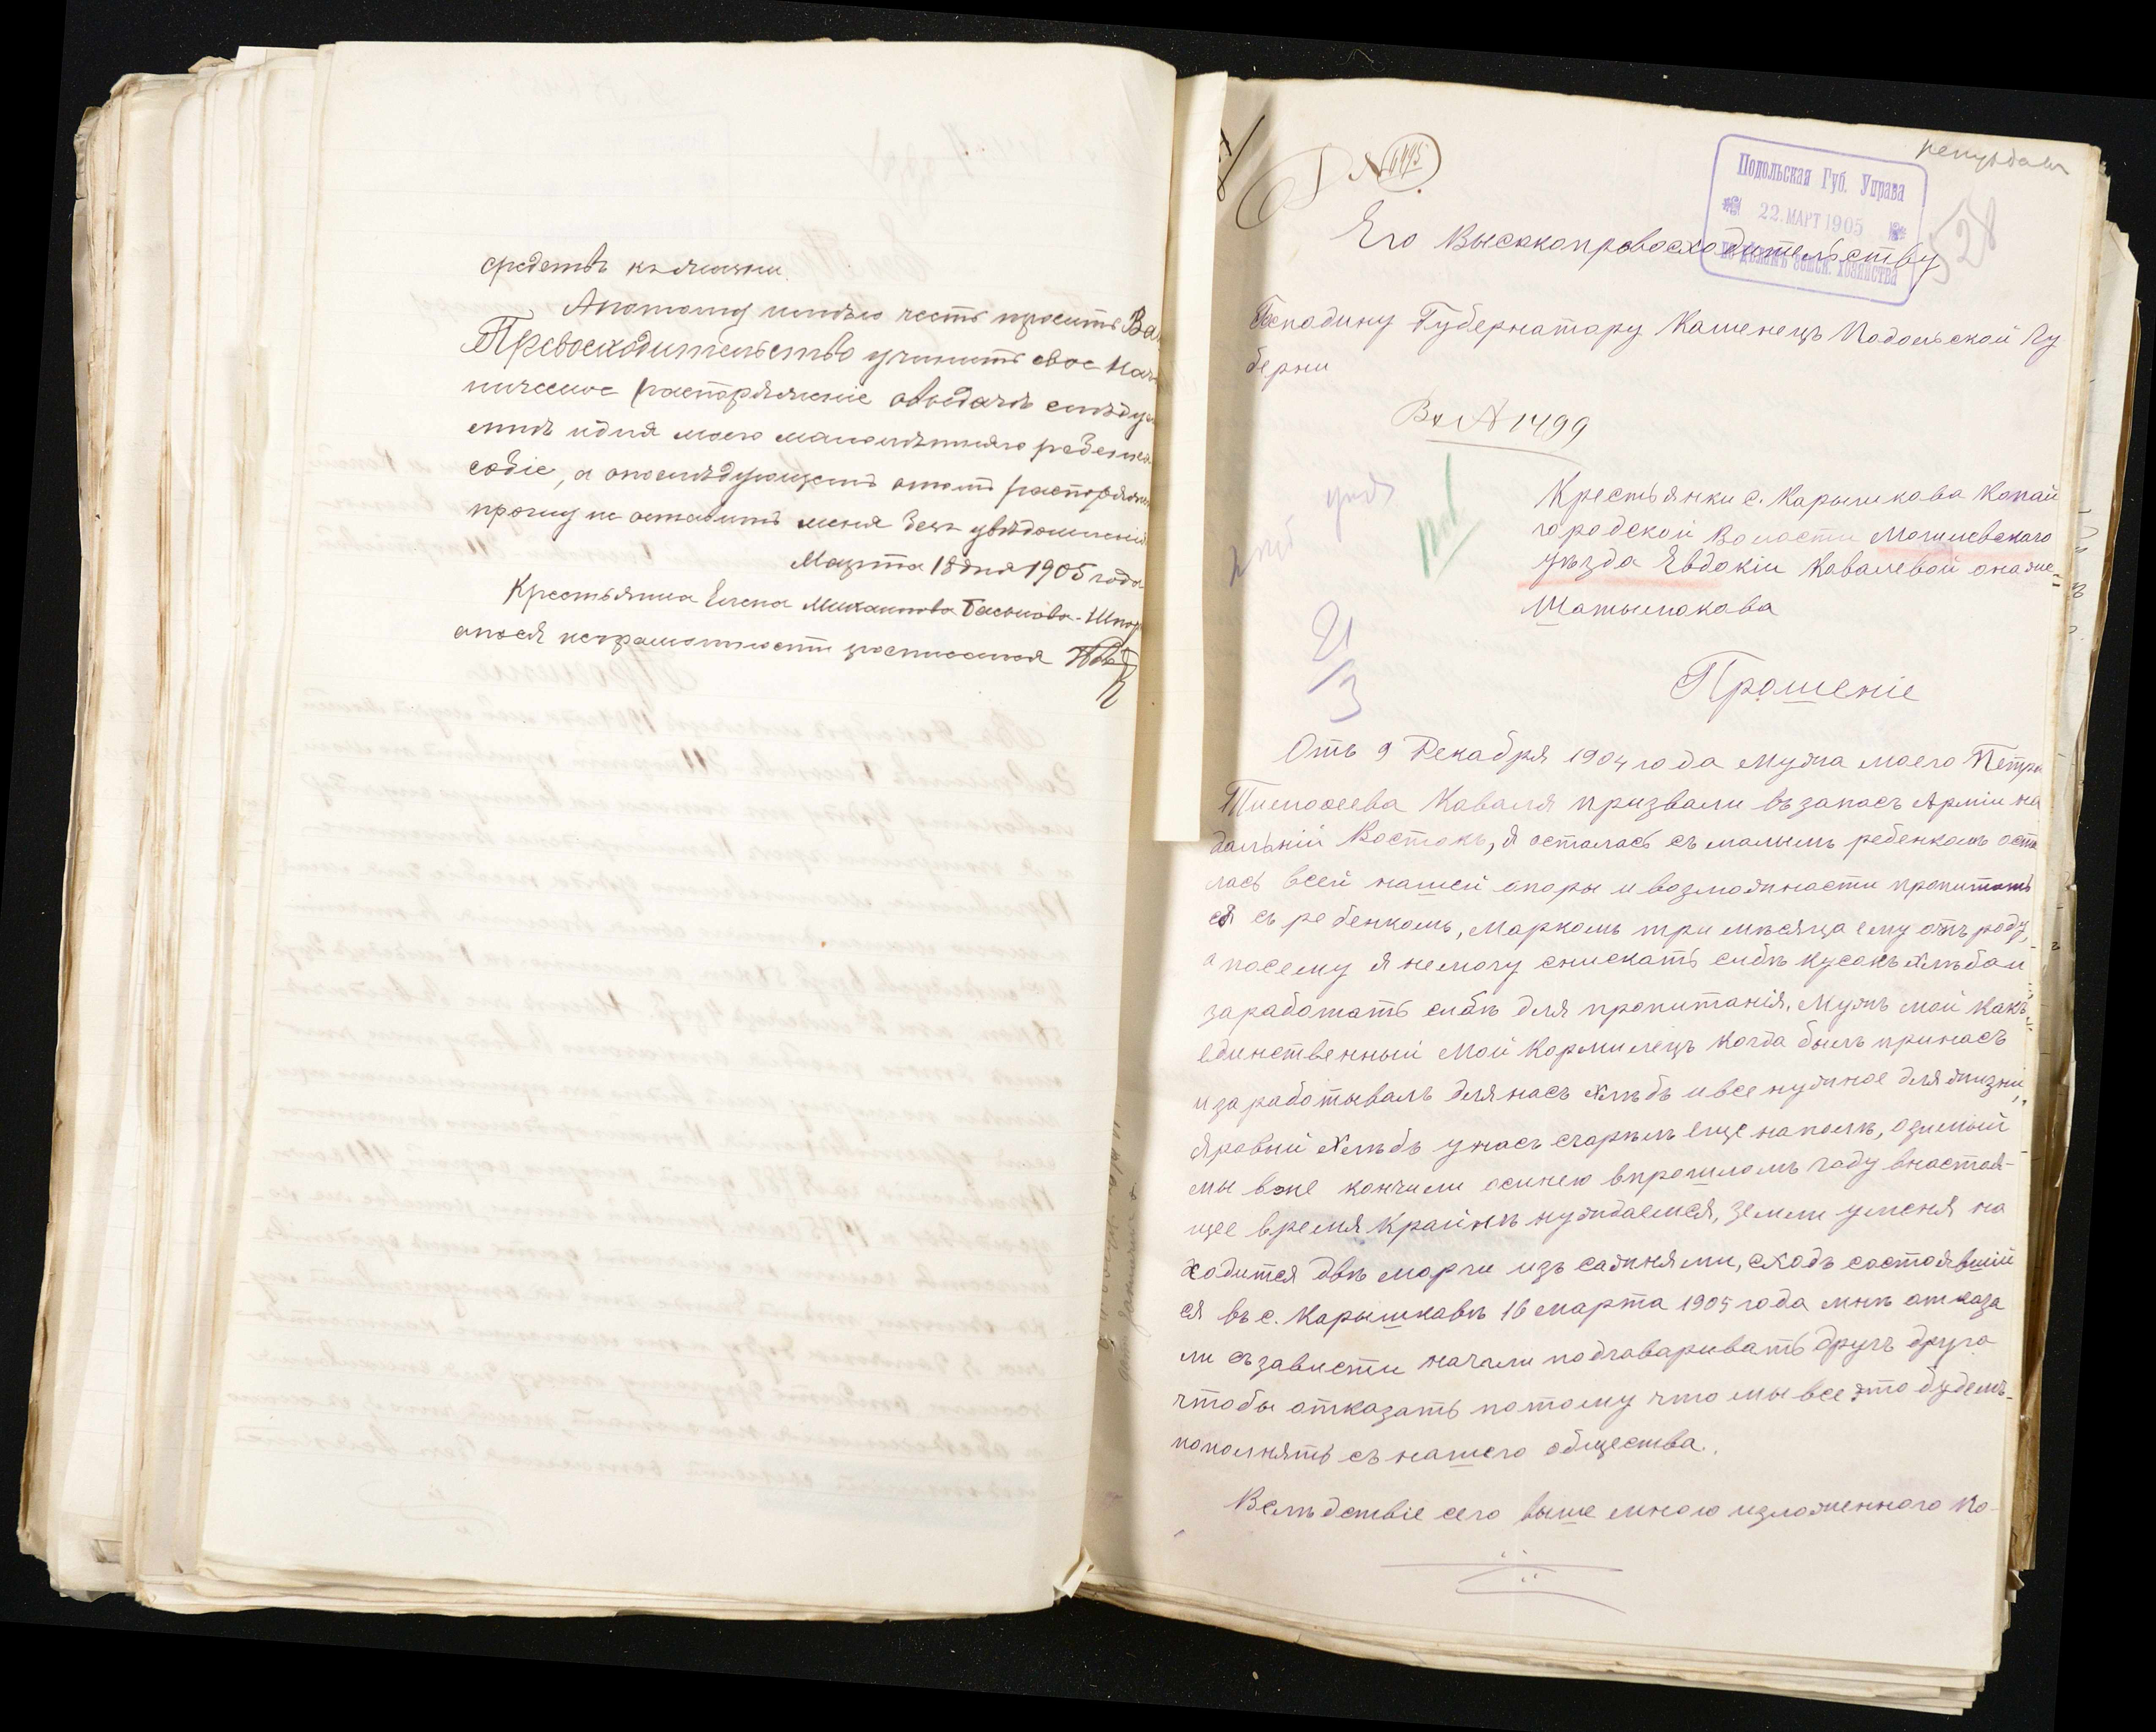 средствъ къ жизни.
Апотому имѣю честь просить Ва
Превосходительство учинить свое Нач
ническое распоряженіе овыдачѣ слѣдую
мнѣ идля моего малолѣтняго ребенка
собіе, а опослѣдующемъ этомъ распоряжен
прошу не оставить меня безъ увѣдомленія
Марта 18 дня 1905 года
Крестьянка Елена Михайлова Басысова-Шпор
анеся неграмотности росписался
№ 6445
непрбдам
Подольская Губ. Управа
22. МАРТ 1905
по дѣламъ Земск. Хозяйства
528
Его Высокопровосходительству
Господину Губернатару Каменецъ Подольской Гу
берни
Вх № 1499
Крестьянки с. Карышкова Копай
городской Воласти Могилевскаго
уѣзда Евдокіи Кавалевой она же
Матылюкова
21/3
Прошеніе
Отъ 9 Декабря 1904 года мужа моего Петра
Тимофеева Коваля призвали въ запасъ Арміи на
дальній Востокъ, я осталась съ малымъ ребенкомъ оста
лась всей нашей опоры и возможности прапитать
ся съ ребенкомъ, Маркомъ три мѣсяца ему отъ роду,
а посему я немогу снискать сибѣ кусокъ хлѣба и
заработать сибѣ для пропитанія. Мужъ мой какъ
единственный мой Кормилецъ когда былъ принасъ
изарабатывалъ длянасъ хлѣбъ ивсе нужное дляжизни,
яровый хлѣбъ унасъ сгарѣлъ еще наполѣ, озимый
мы вже кончили осинею впрошломъ гаду внастоя-
щее время Крайнѣ нуждаемся, земли уменя на
ходится двѣ марги изъ сажнями, сходъ састоявшій
ся въ с. Карышкавѣ 16 марта 1905 года мнѣ отказа
ли съ зависти начали подгаваривать другъ друга
чтобы отказать потому что мы все это будемъ
пополнять съ нашего общества.
Вслѣдствіе сего выше мною изложенного По-